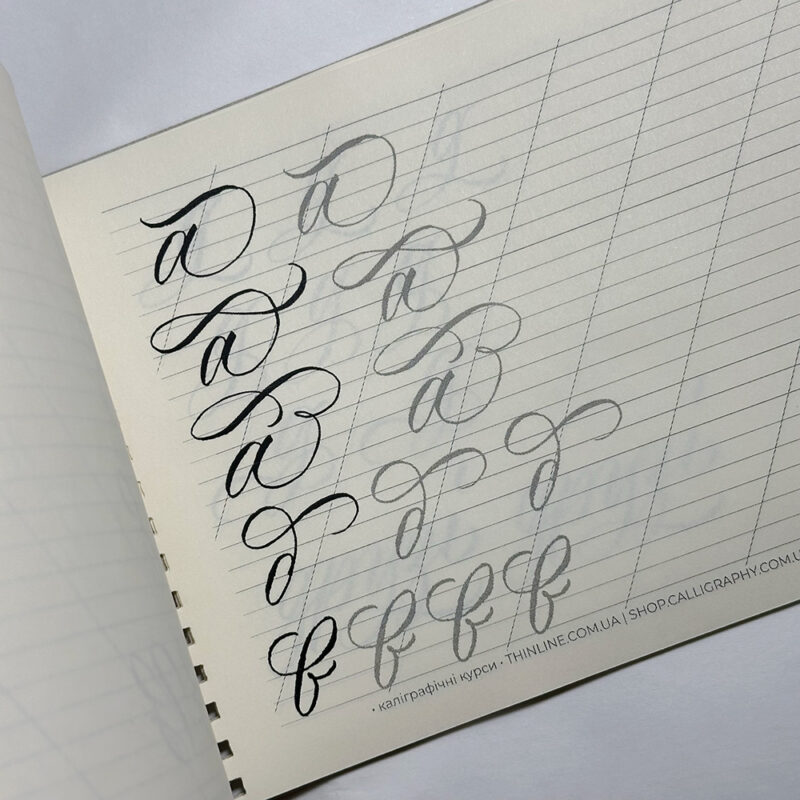 а а
а а
а а
д д д
в в в в
· каліграфічні курси · THINLINE.COM.UA | SHOP.CALLIGRAPHY.COM.U